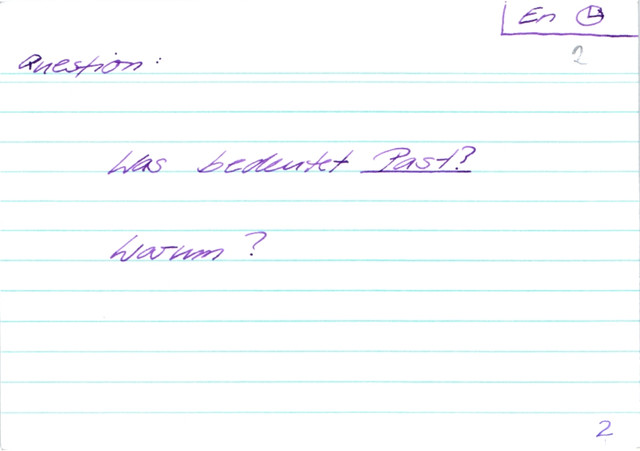 En
2
Question:
Was bedeutet Past?
Warum?
2